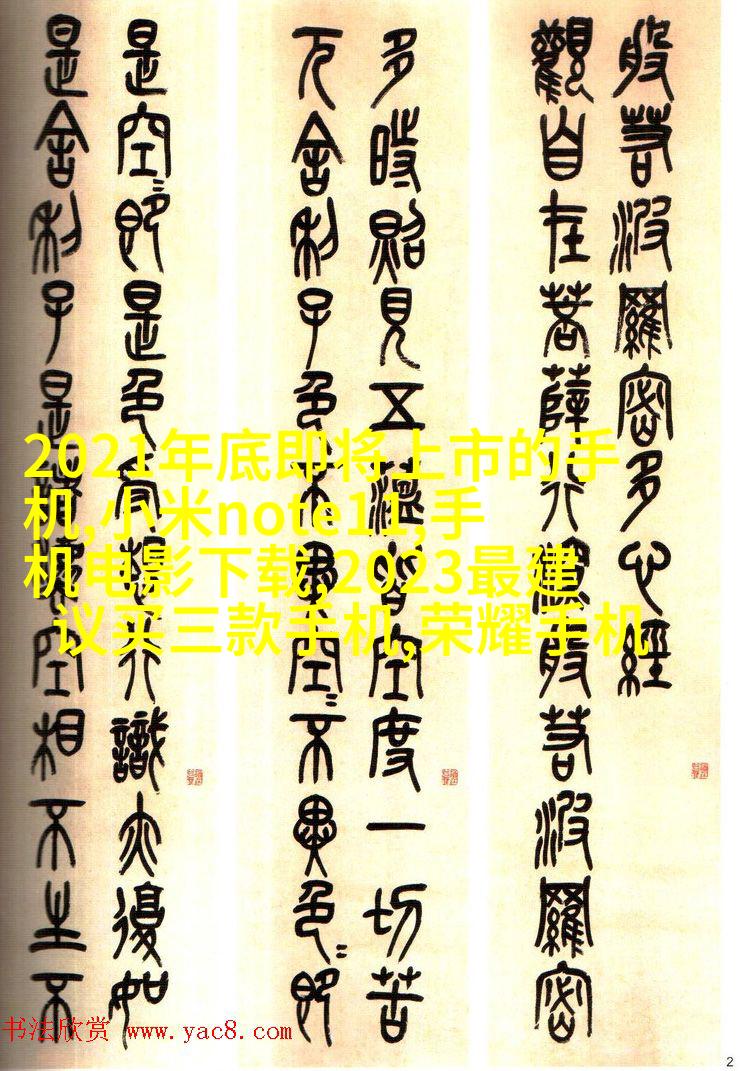 般若波羅密多心經
觀自在菩薩行深般若波羅密
多時照見五蘊皆空度一切苦
厄舍利子色不異空〻不異色〻即
是空〻即是色受想行識亦復如
是舍利子是諸法空相不生不
2021年底即将上市的手
机,小米note11,手
机电影下载,2023最建
议买三款手机,荣耀手机
书法欣赏 www.yac8.com
2